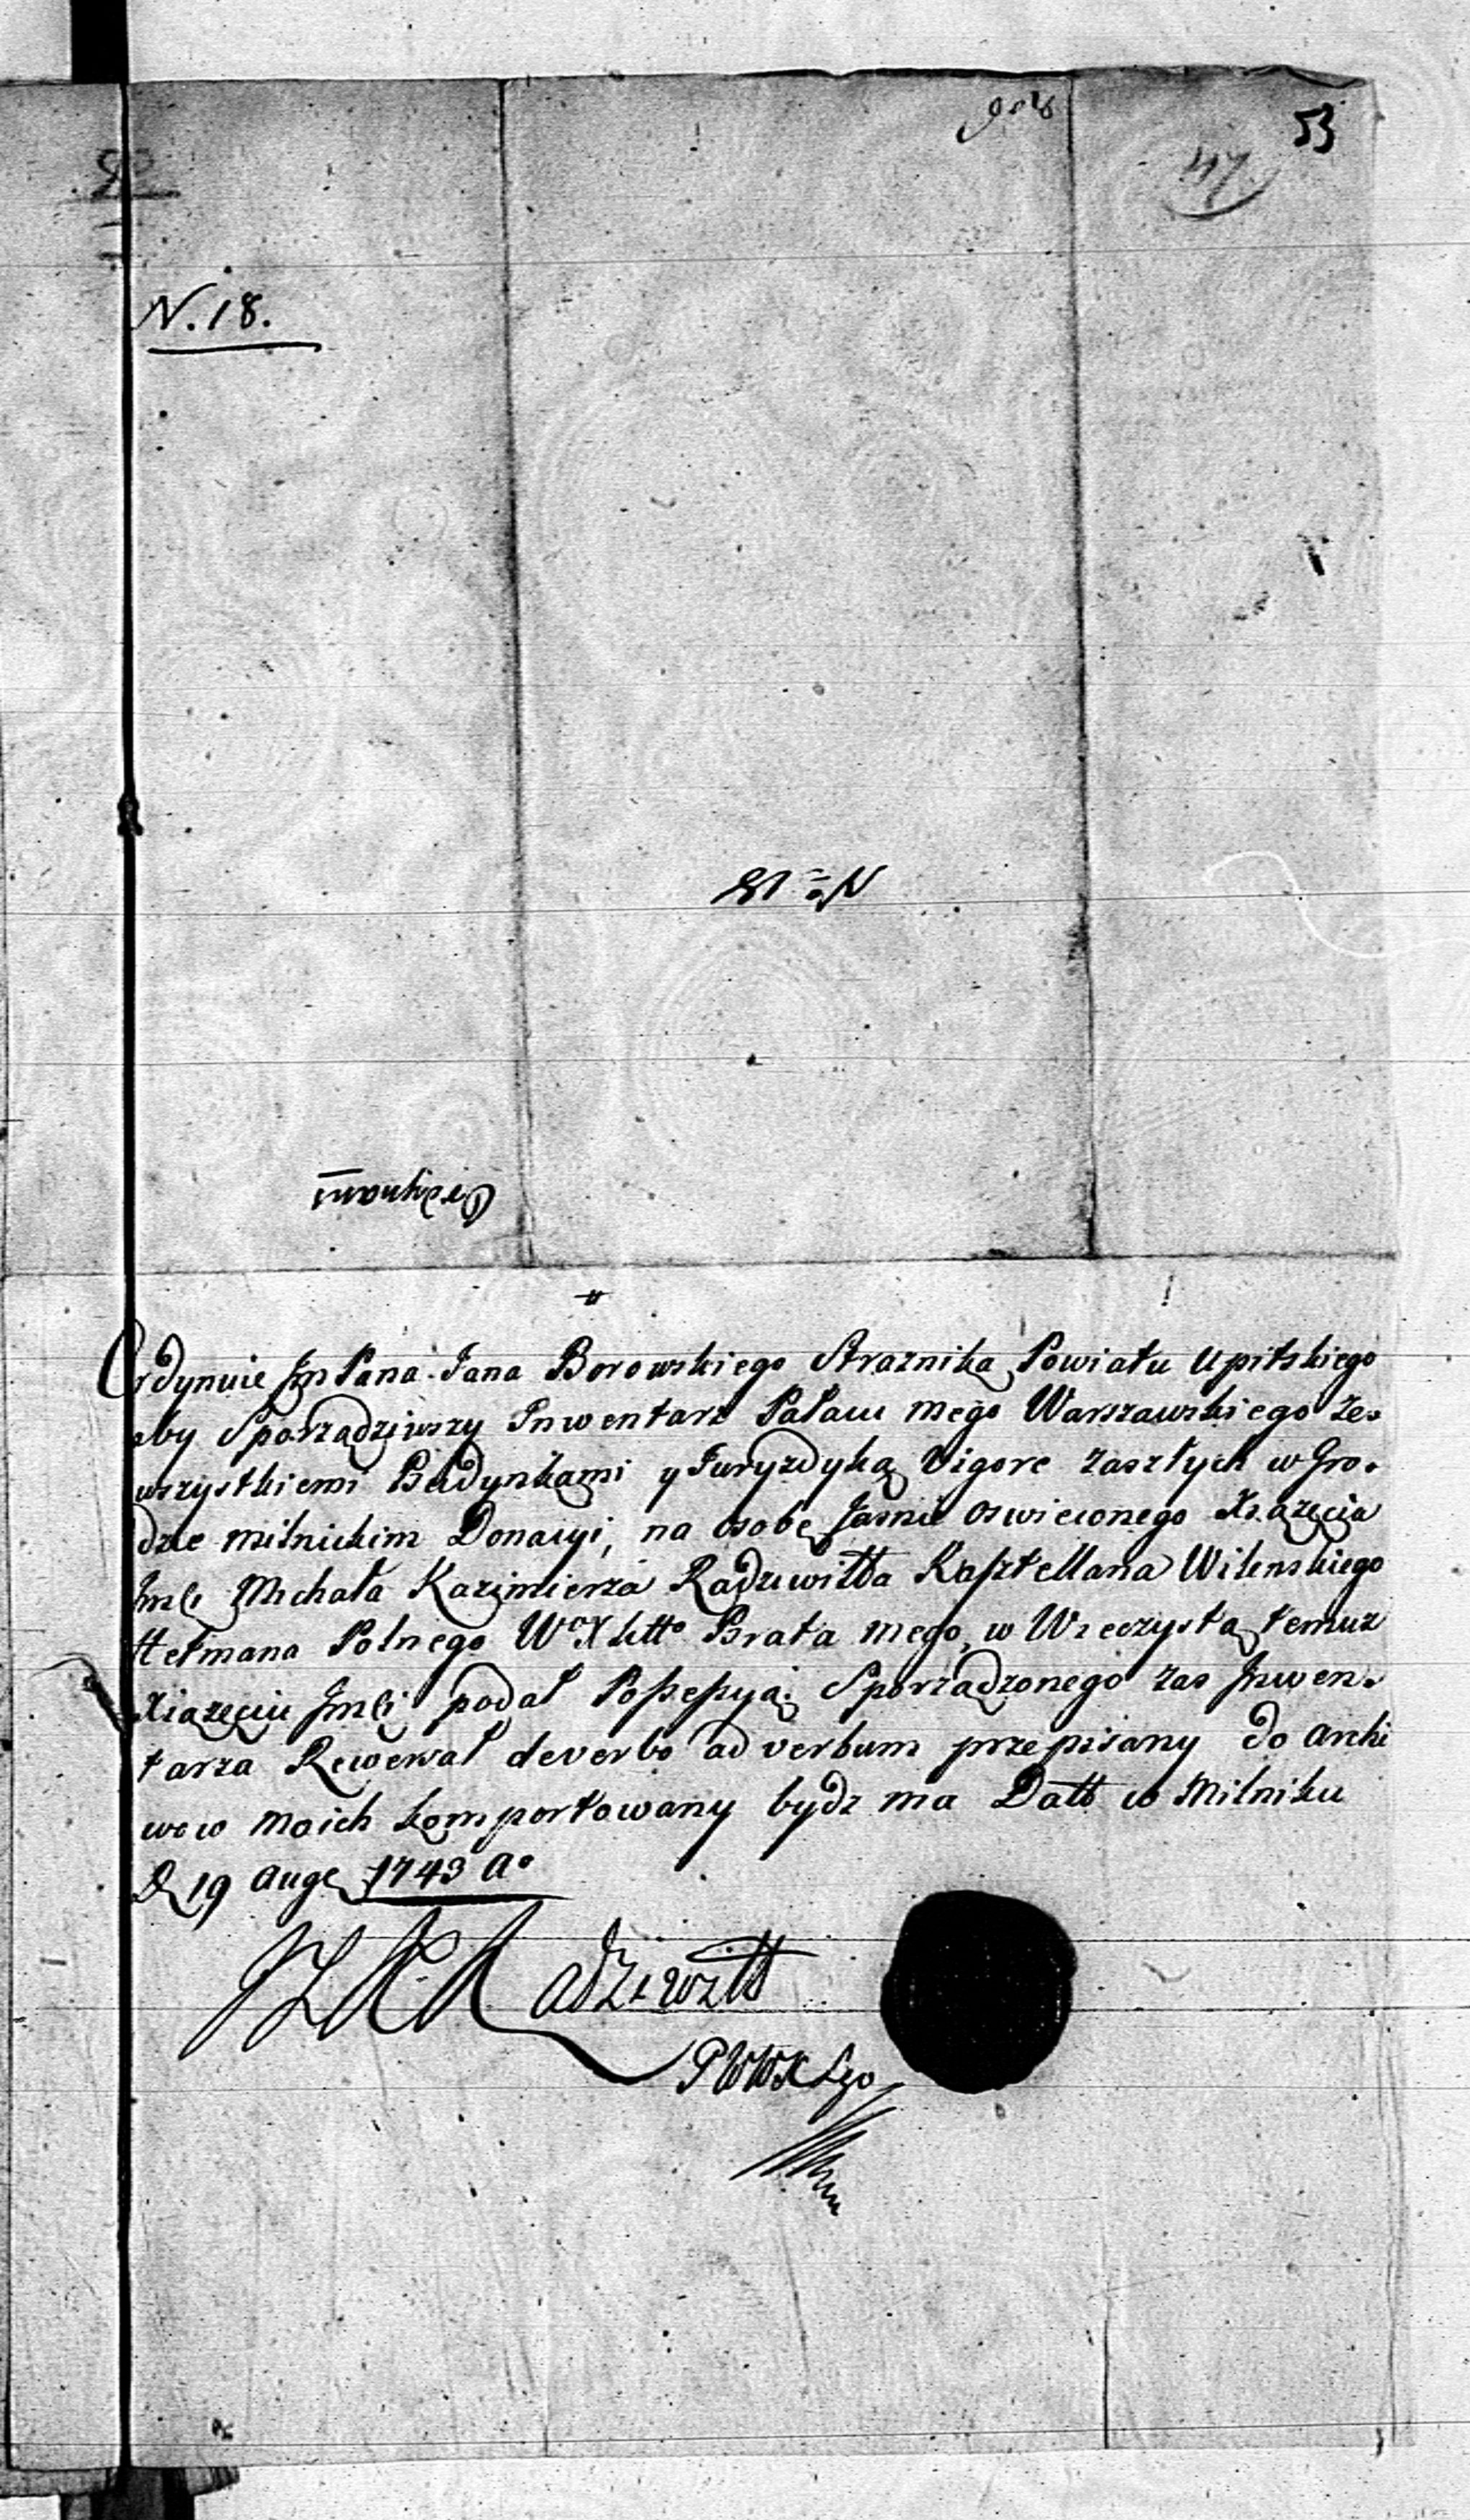 53
N. 18.
No 18
Ordynuie Jm Pana Jana Borowskiego Straznika Powiatu Upitskiego
aby Sporządziwszy Inwentarz Pałacu mego Warszawskiego ze
wszystkiemi Budynkami y Juryzdyką Vigore zaszłych w Gro-
dzie milnickim Donacyi, na osobę Jasnie oswieconego Xiązęcia
Jmści Michała Kazimierza Radziwiłła Kasztellana Wilenskiego
Hetmana Polnego W° X Litt° Brata mego, w Wieczystą temuz
Xiązęciu Jmści podał Possessyą. Sporządzonego zas Jnwen-
tarza Rewersał de verbo ad verbum przepisany do Archi
wow moich komportowany bydz ma Datt w Milniku
D 19 Aug 1743 A°
Radziwiłł
PWWXLgo